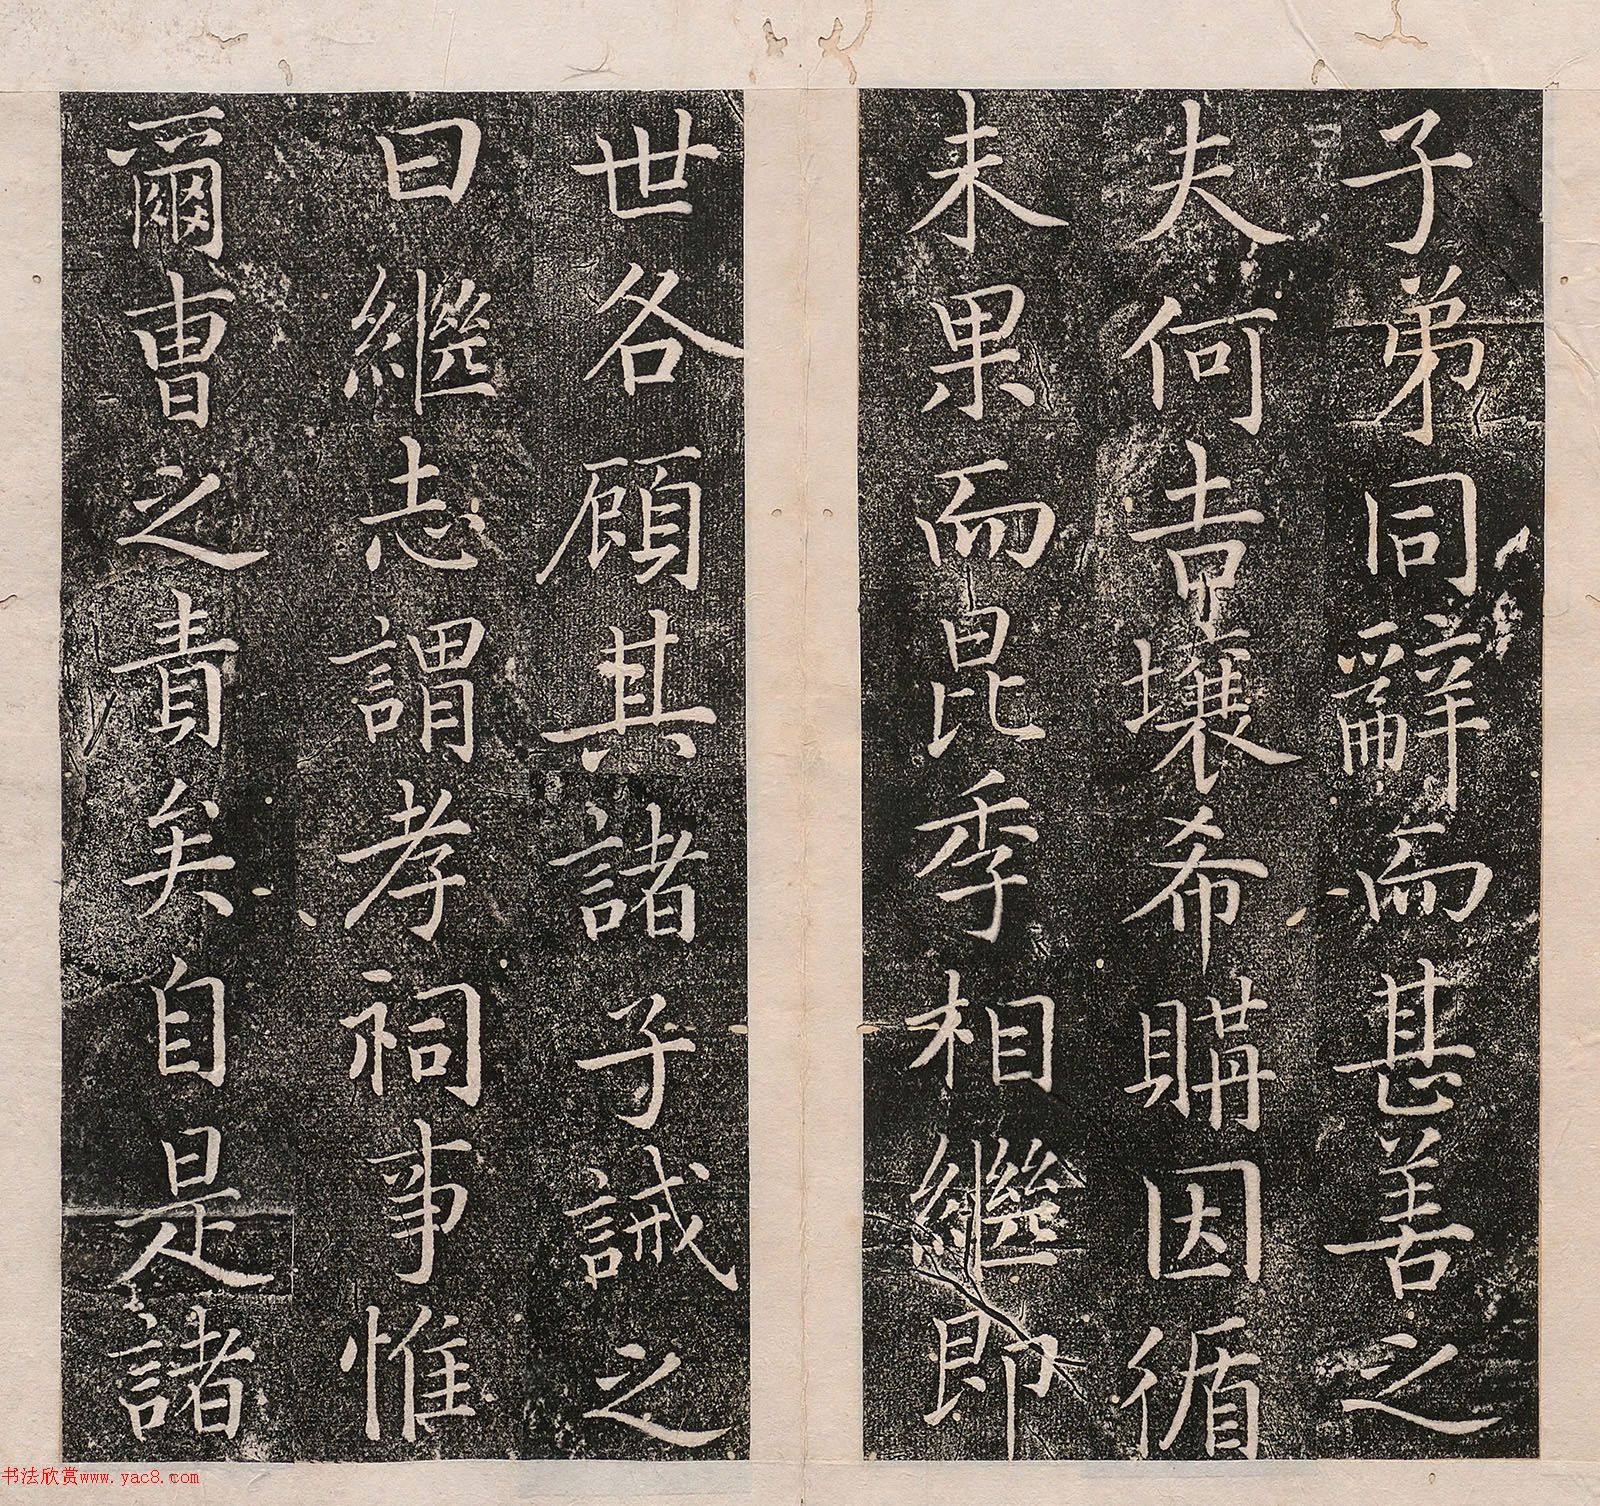 子弟同辭而甚善之
夫何吉壤希購因循
未果而昆季相繼即
世各顧其諸子誡之
曰繼志謂孝祠事惟
爾曹之責矣自是諸
书法欣赏www.yac8.com